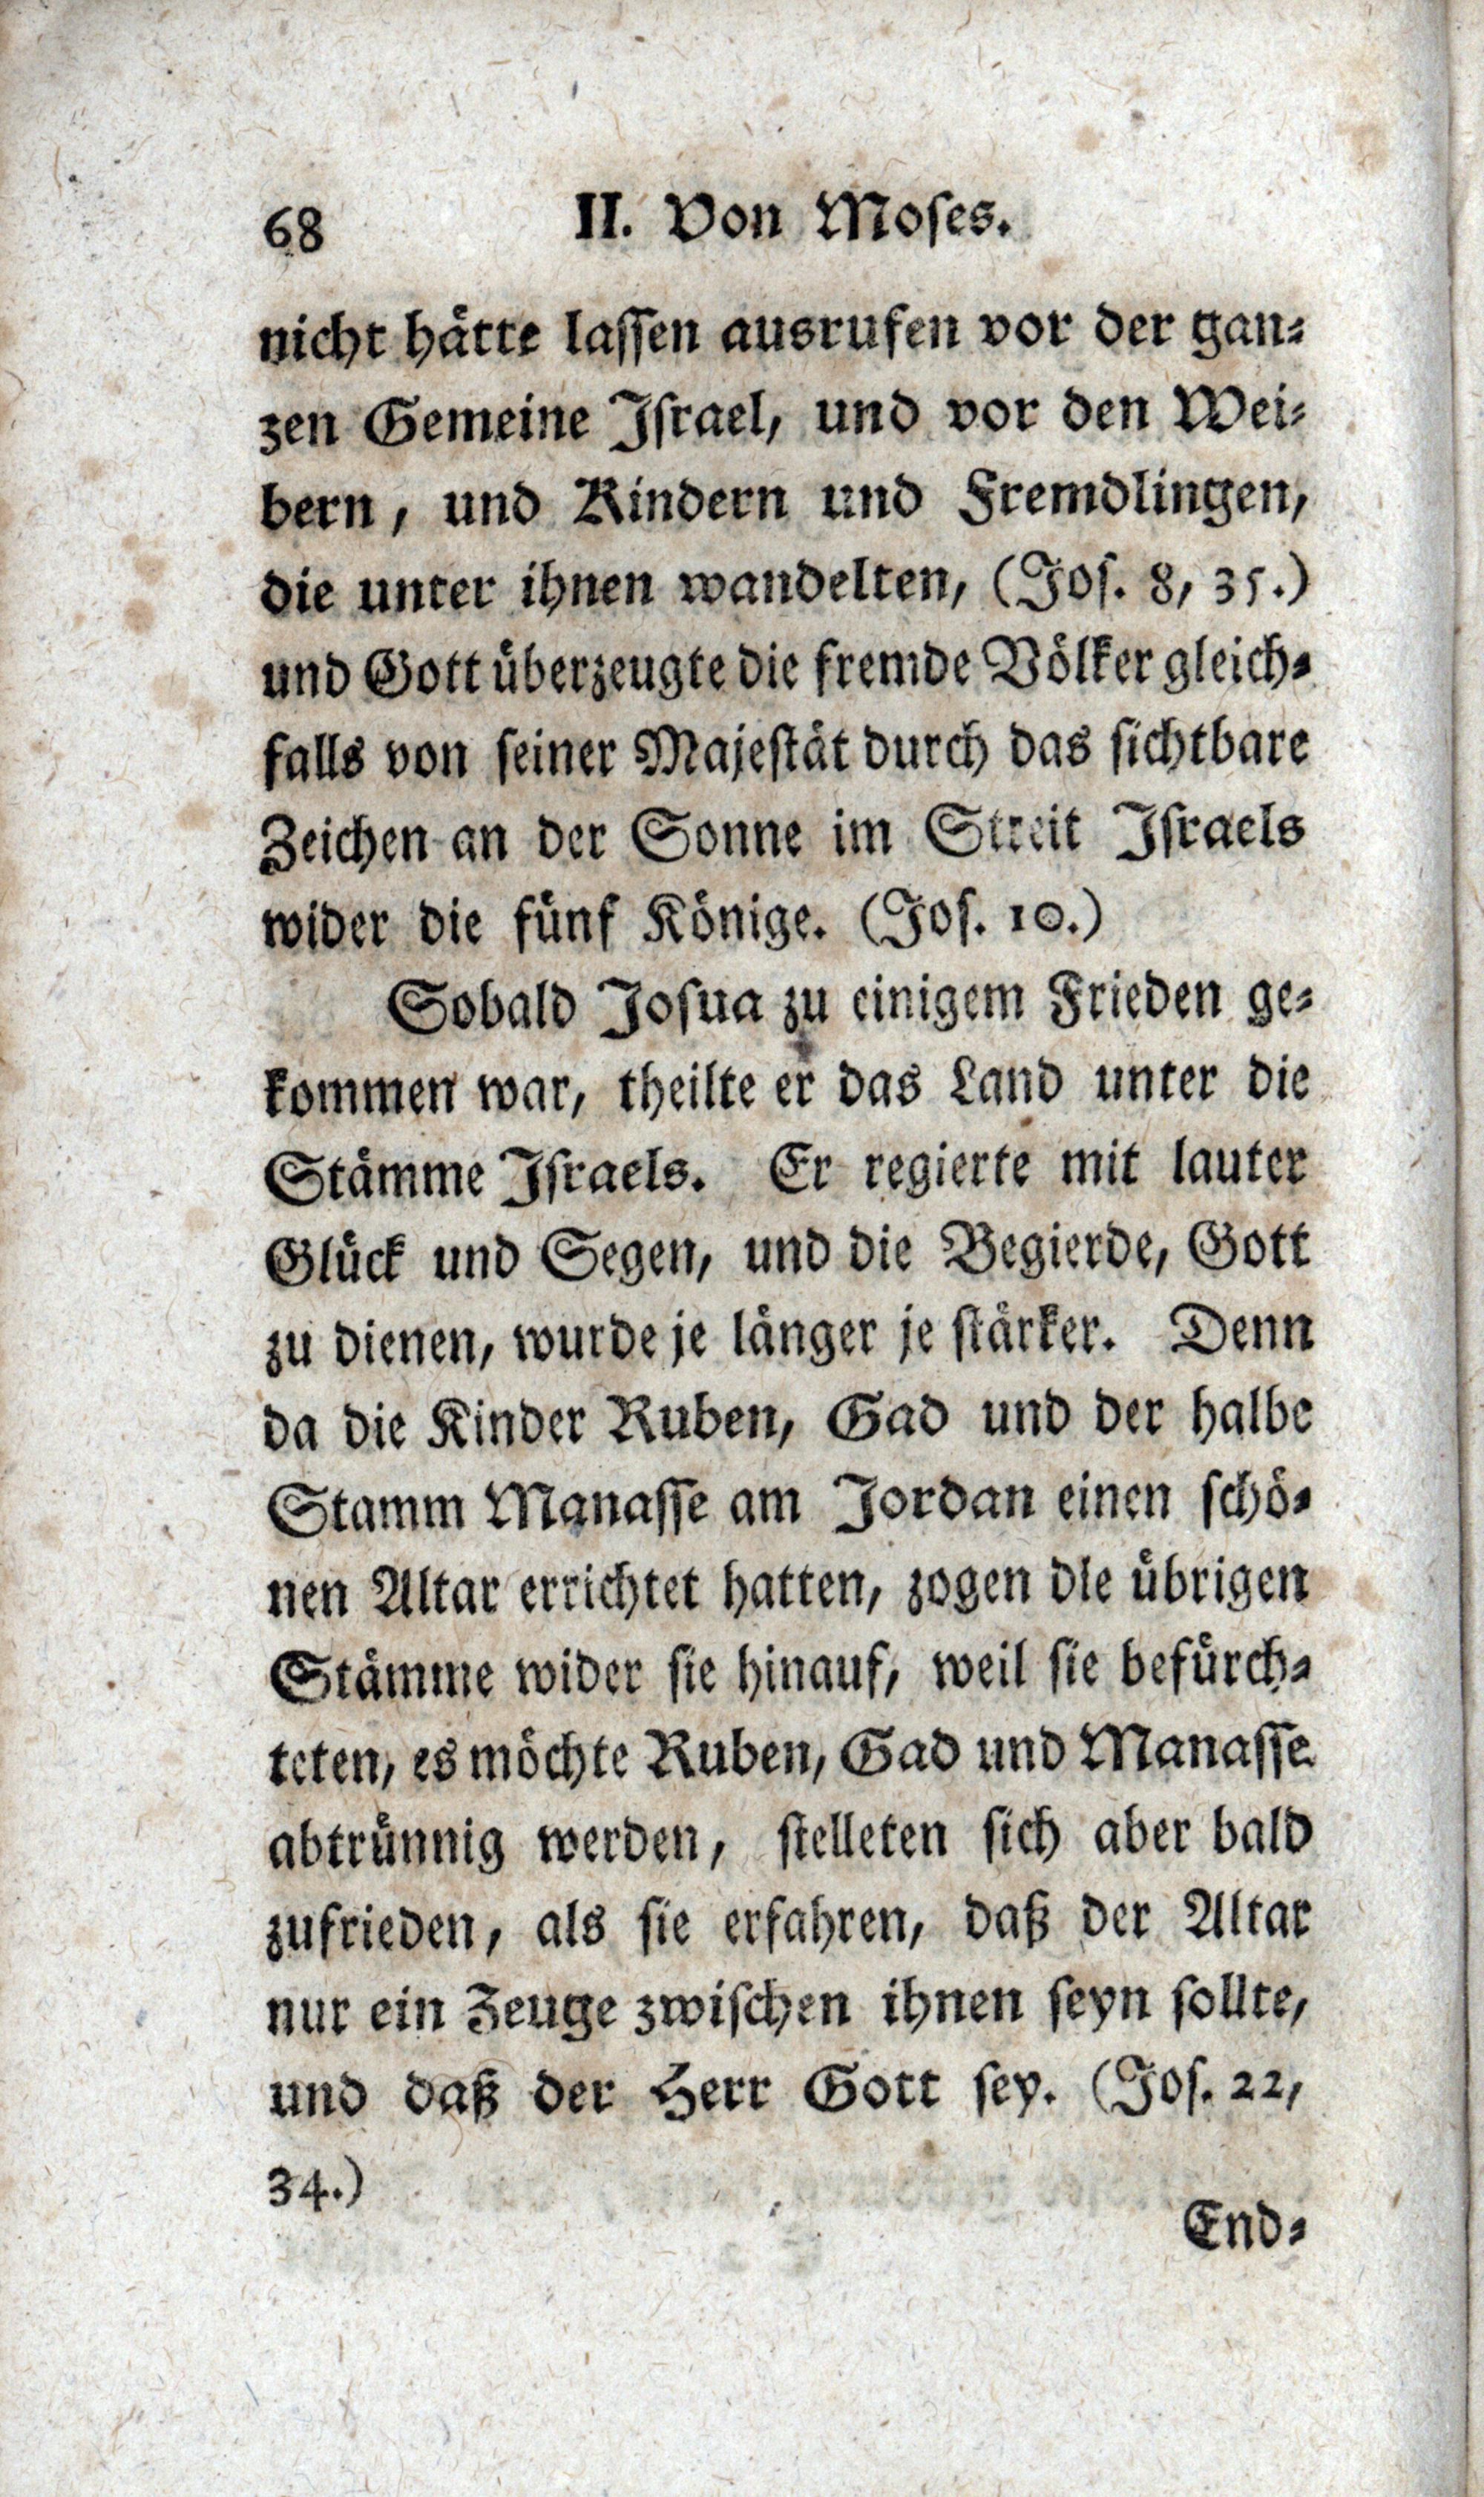 68 II. Von Moſes.
nicht hätte laſſen ausrufen vor der gan⸗
zen Gemeine Iſrael, und vor den Wei⸗
bern, und Kindern und Fremdlingen,
die unter ihnen wandelten, (Joſ. 8, 35.)
und Gott überzeugte die fremde Völker gleich⸗
falls von ſeiner Majeſtät durch das ſichtbare
Zeichen an der Sonne im Streit Iſraels
wider die fünf Könige. (Joſ. 10.)
Sobald Joſua zu einigem Frieden ge⸗
kommen war, theilte er das Land unter die
Stämme Iſraels. Er regierte mit lauter
Glück und Segen, und die Begierde, Gott
zu dienen, wurde je länger je ſtärker. Denn
da die Kinder Ruben, Gad und der halbe
Stamm Manaſſe am Jordan einen ſchö⸗
nen Altar errichtet hatten, zogen dle übrigen
Stämme wider ſie hinauf, weil ſie befürch⸗
teten, es möchte Ruben, Gad und Manaſſe
abtrünnig werden, ſtelleten ſich aber bald
zufrieden, als ſie erfahren, daß der Altar
nur ein Zeuge zwiſchen ihnen ſeyn ſollte,
und daß der Herr Gott ſey. (Joſ. 22,
34.)
End⸗